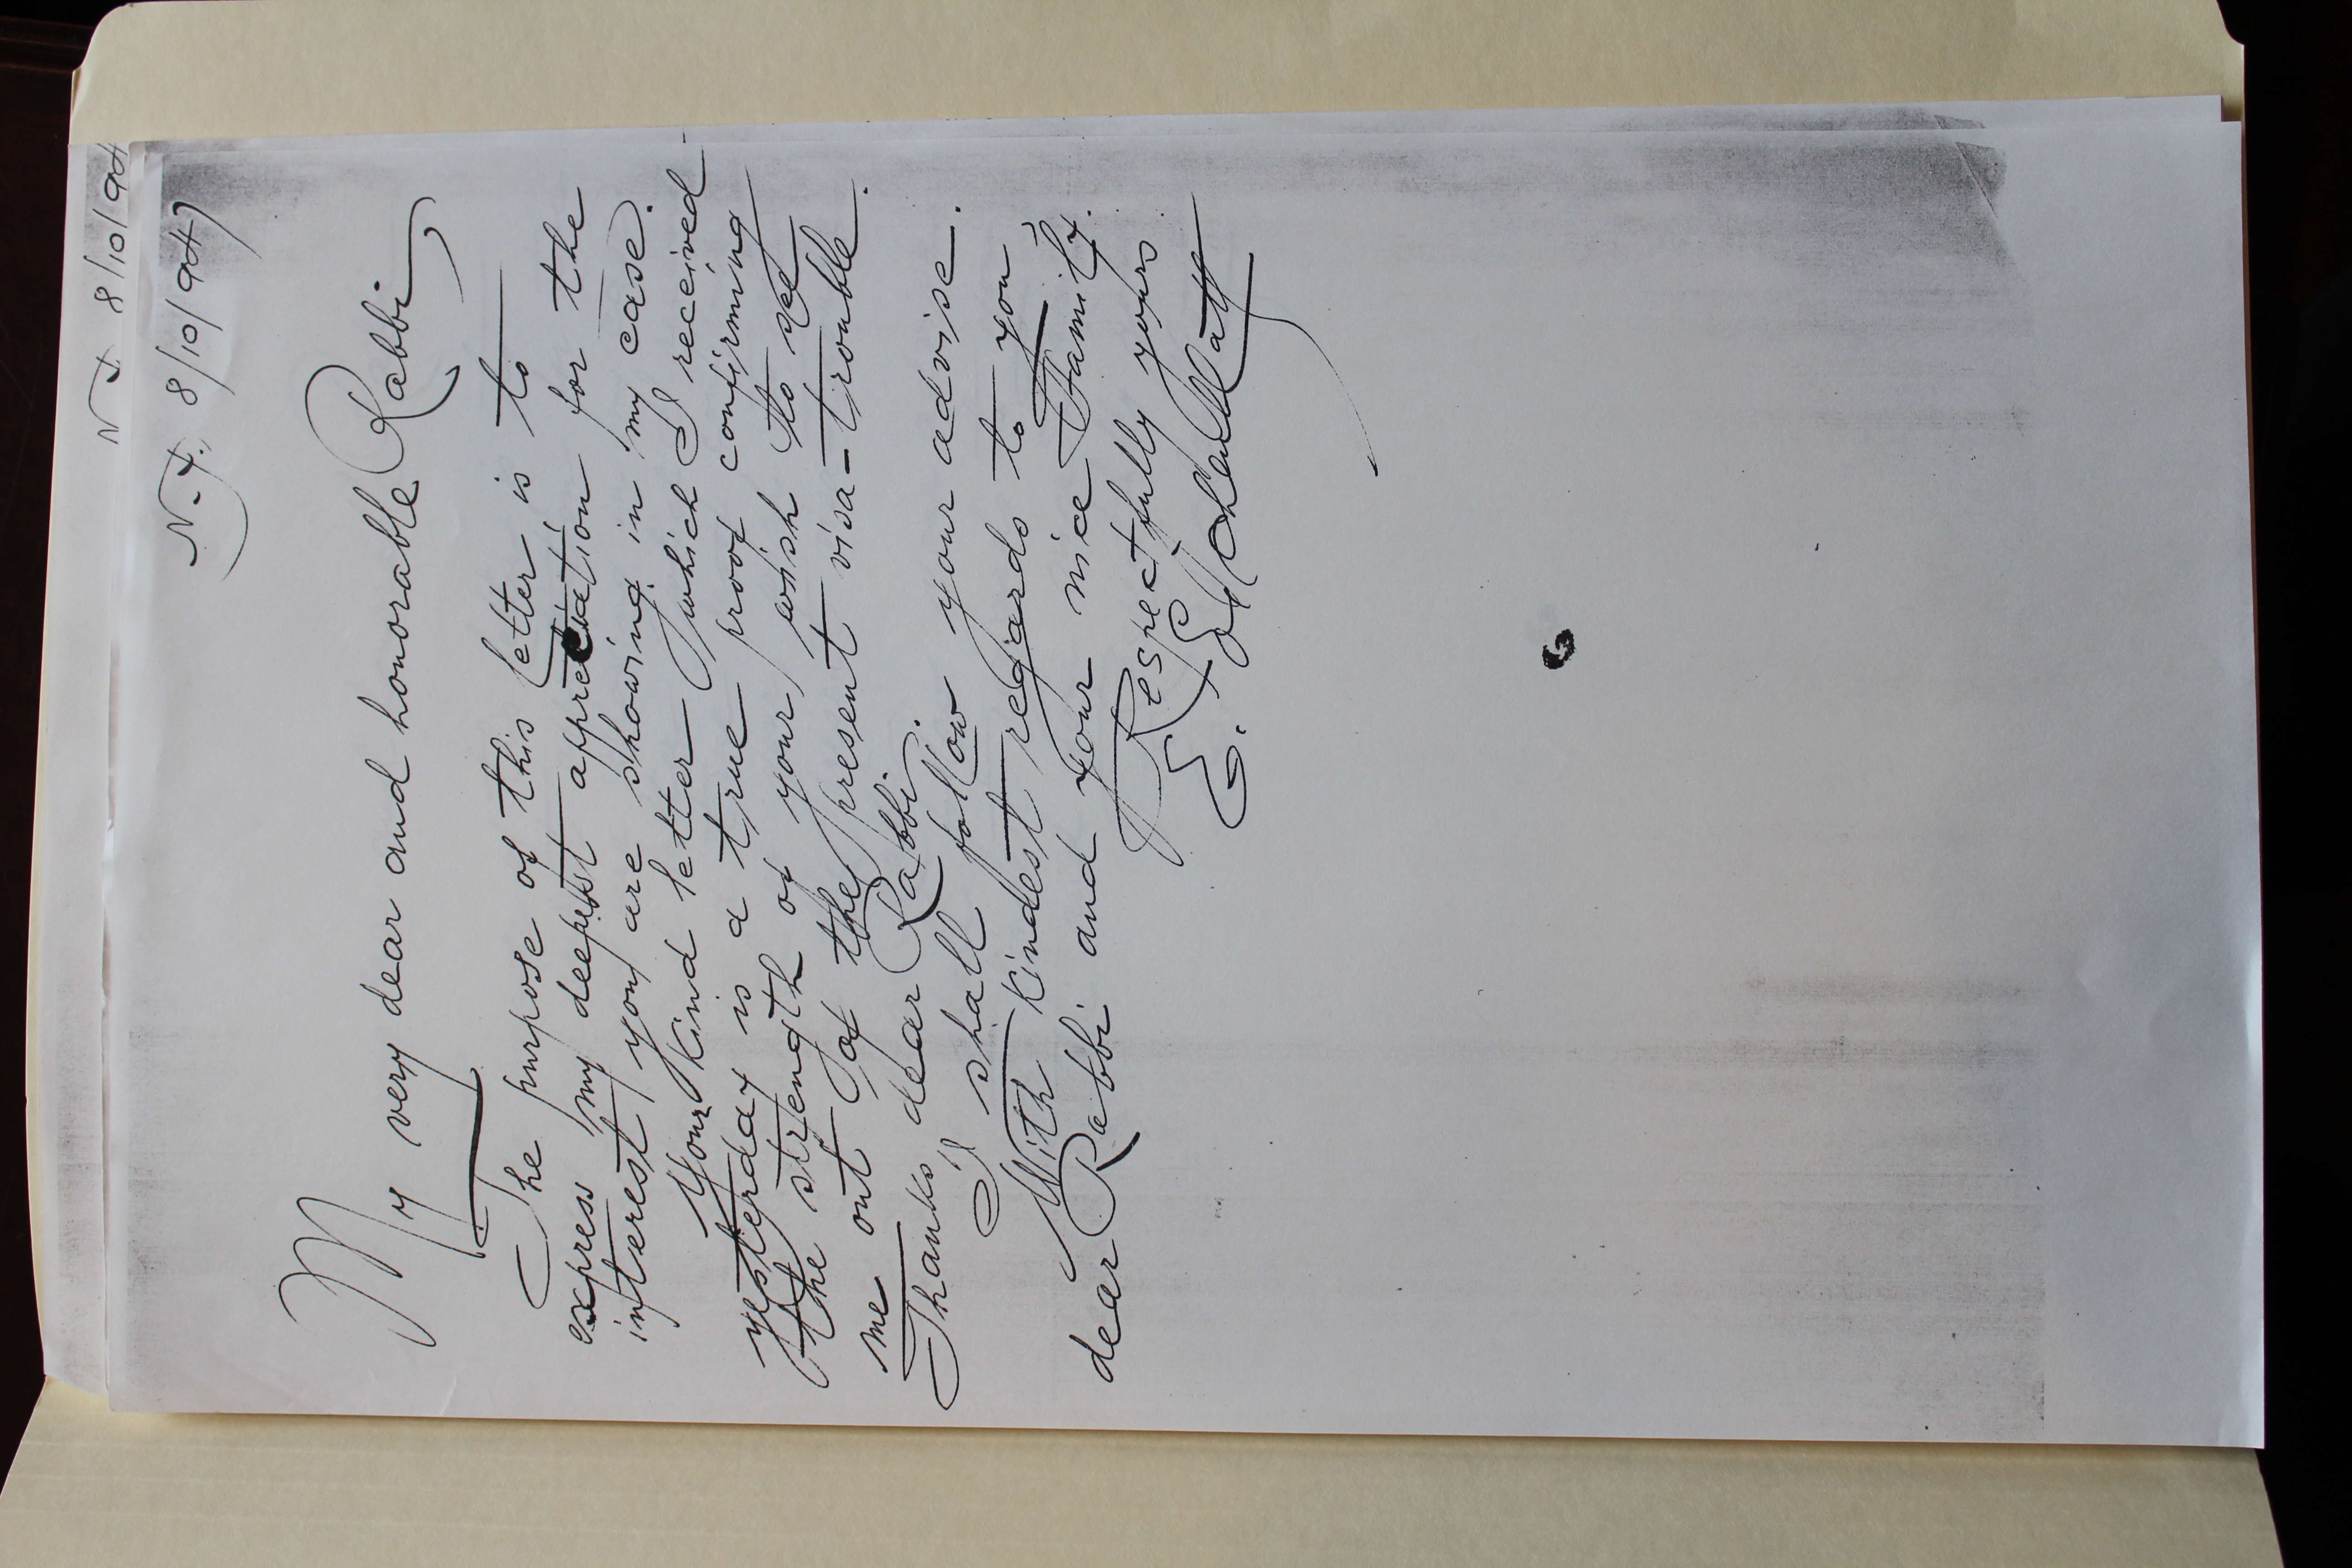 N.Y. 8/10/944
N.Y. 8/10/944
My very dear and honorable Rabbi,
The purpose of this letter is to
express my deepest appreciation for the
interest you are showing in my case.
Your kind letter which I received
yesterday is a true proof confirming
the strength of your wish to see
me out of the present visa-trouble.
Thanks dear Rabbi.
I shall follow your advise.
With kindest regards to you,
dear Rabbi and your nice Family.
Respectfully yours
E.